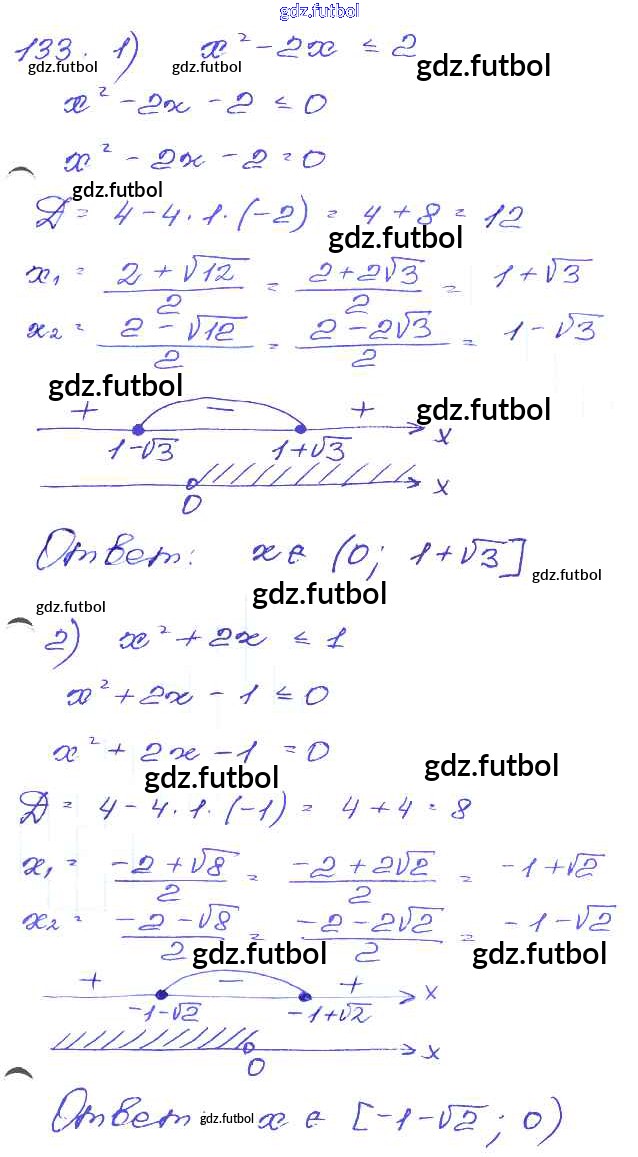 gdz.futbol
133. 1) x² - 2x ≤ 2
gdz.futbol gdz.futbol gdz.futbol
x² - 2x - 2 ≤ 0
x² - 2x - 2 = 0
gdz.futbol
Д = 4 - 4 · 1 · (-2) = 4 + 8 = 12
gdz.futbol
x₁ = (2 + √12)/2 = (2 + 2√3)/2 = 1 + √3
x₂ = (2 - √12)/2 = (2 - 2√3)/2 = 1 - √3
gdz.futbol
+ − + gdz.futbol
1-√3 1+√3 x
0 x
Ответ: x ∈ (0; 1+√3]
gdz.futbol gdz.futbol
gdz.futbol
2) x² + 2x ≤ 1
x² + 2x - 1 ≤ 0
x² + 2x - 1 = 0
gdz.futbol gdz.futbol
Д = 4 - 4 · 1 · (-1) = 4 + 4 = 8
x₁ = (-2 + √8)/2 = (-2 + 2√2)/2 = -1 + √2
x₂ = (-2 - √8)/2 = (-2 - 2√2)/2 = -1 - √2
gdz.futbol gdz.futbol
+ − + x
-1-√2 -1+√2
0 x
Ответ gdz.futbol x ∈ [-1-√2; 0)